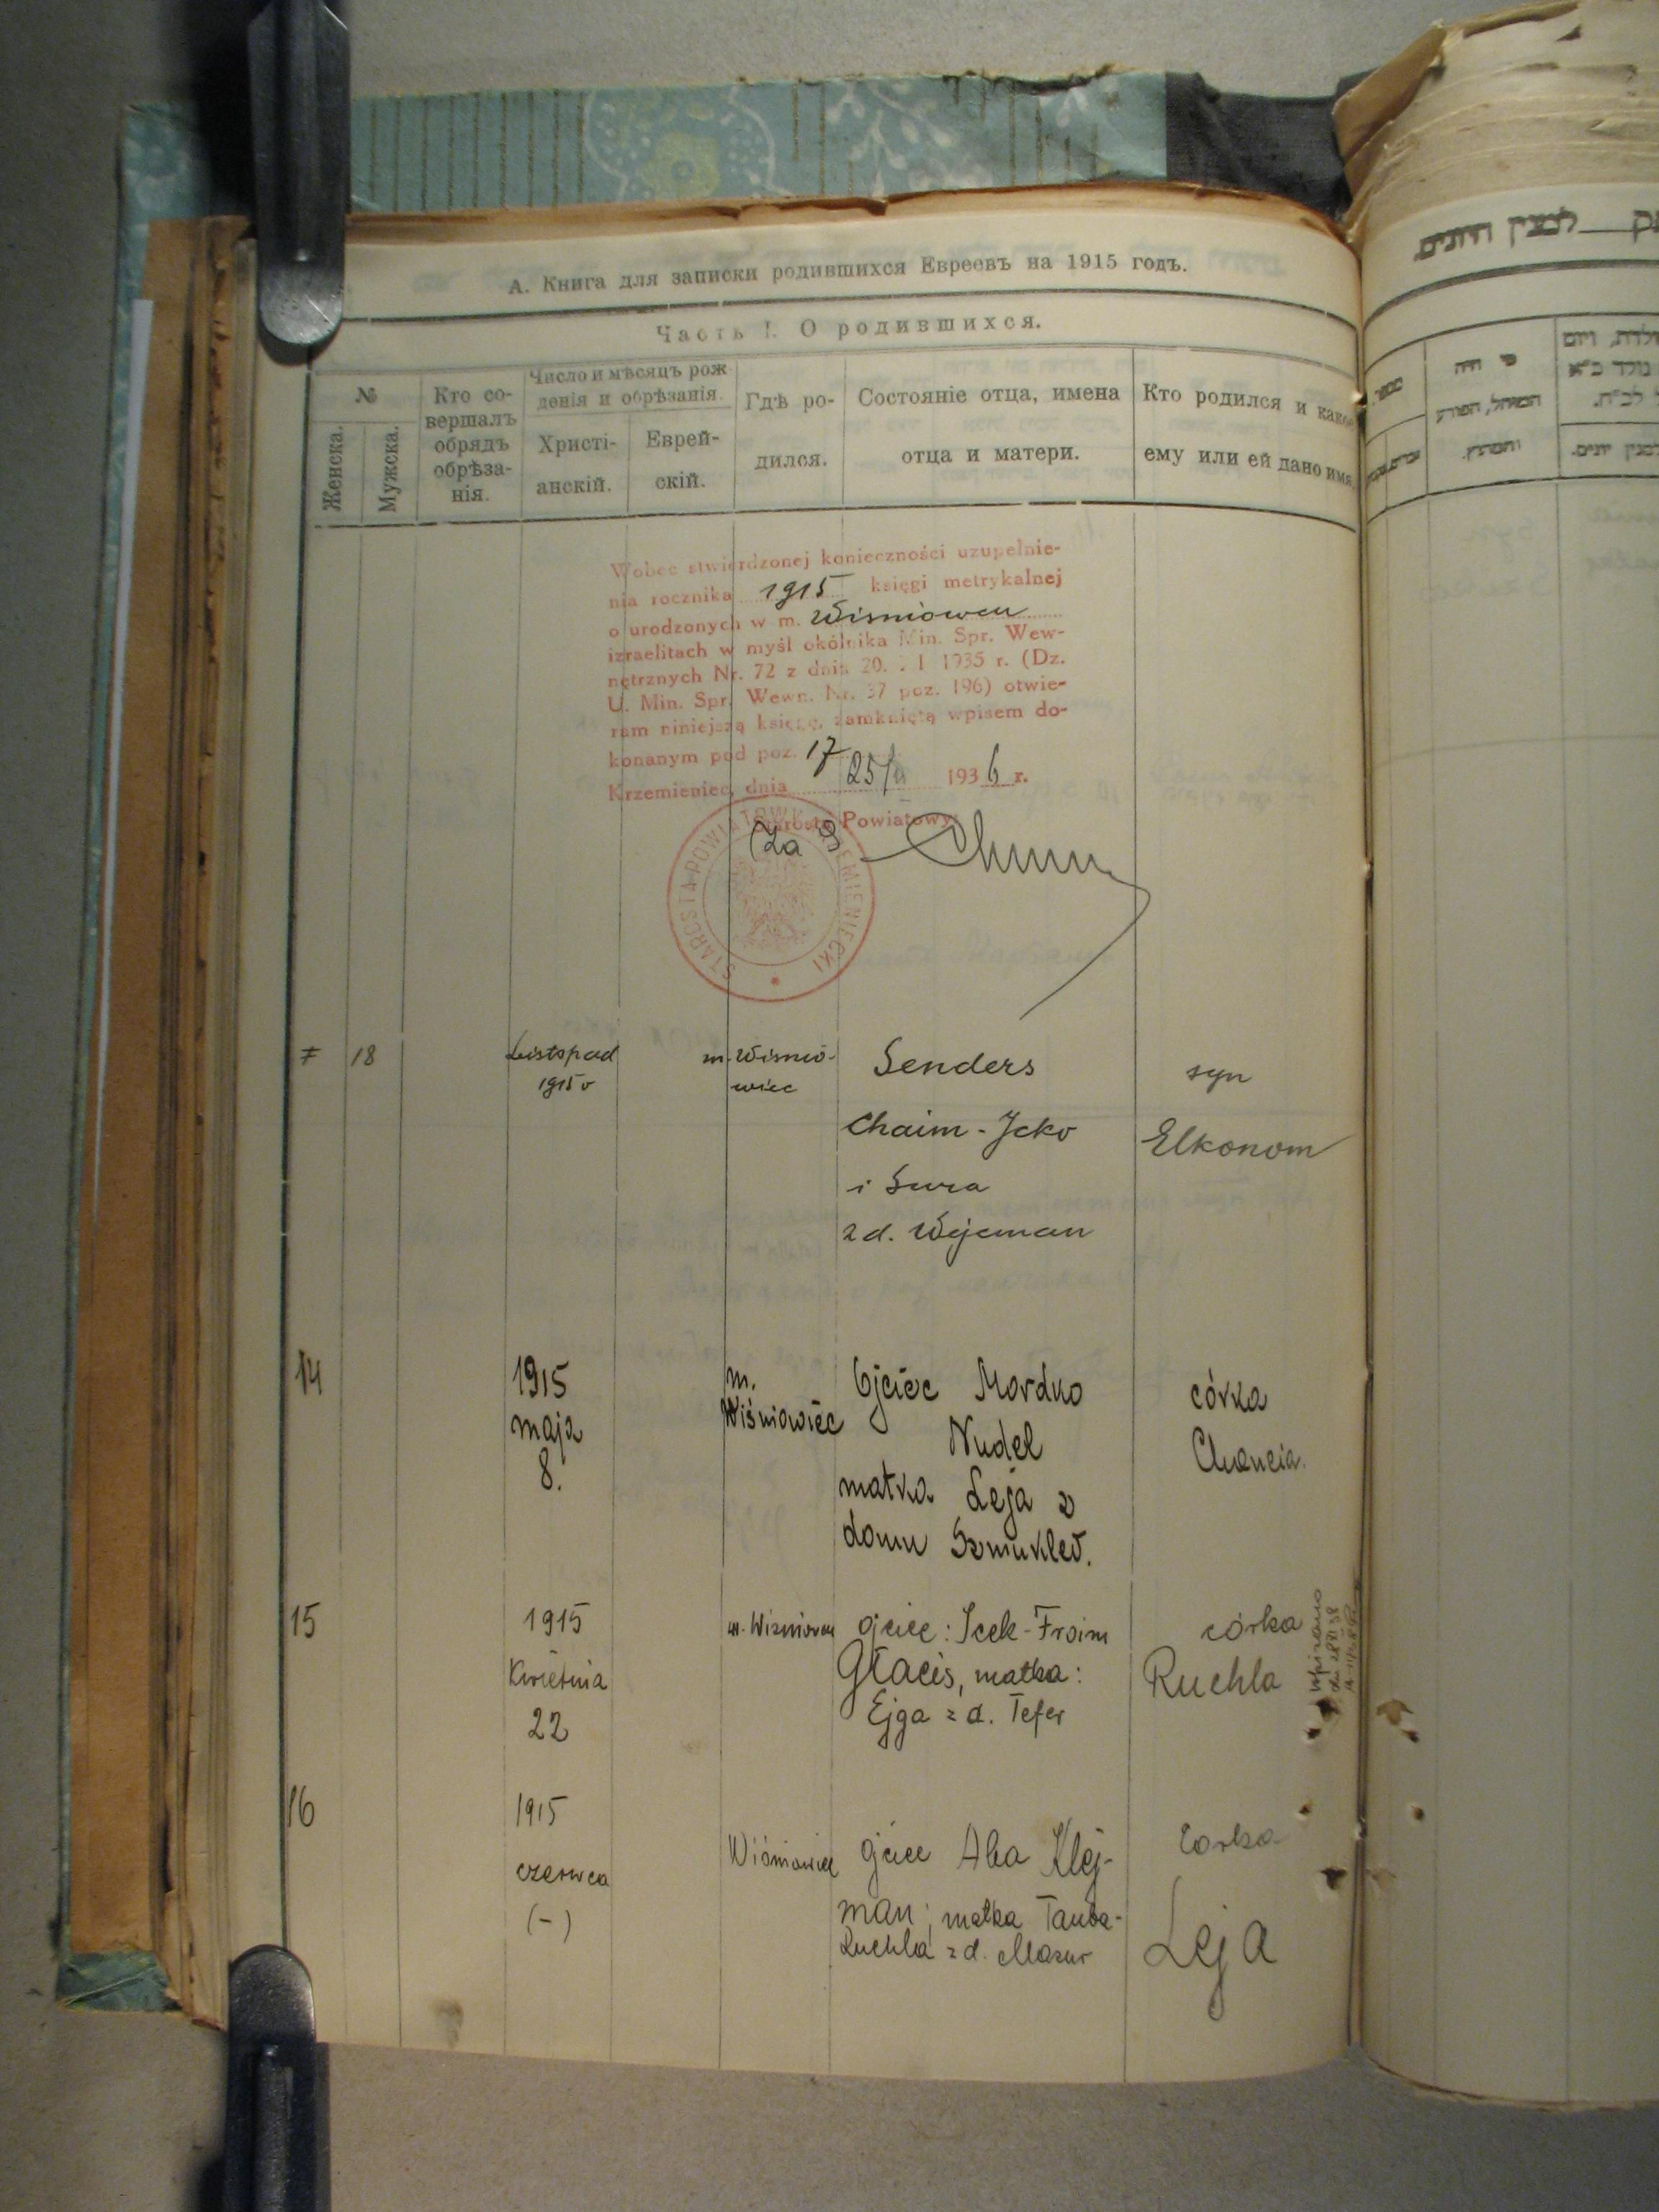 А. Книга для записки родившихся Евреевъ на 1915 годъ.
Часть I. О родившихся.
№
Женска.
Мужска.
Кто со-
вершалъ
обрядъ
обрѣза-
нія.
Число и мѣсяцъ рож
денія и обрѣзанія.
Христі-
анскій.
Еврей-
скій.
Гдѣ ро-
дился.
Состояніе отца, имена
отца и матери.
Кто родился и какое
ему или ей дано имя.
Wobec stwierdzonej konieczności uzupełnie-
nia rocznika 1915 księgi metrykalnej
o urodzonych w m. Wiśniowcu
izraelitach w myśl okólnika Min. Spr. Wew-
nętrznych Nr. 72 z dnia 20. I 1935 r. (Dz.
U. Min. Spr. Wewn. Nr. 37 poz. 196) otwie-
ram niniejszą księgę, zamkniętą wpisem do-
konanym pod poz. 17
Krzemieniec, dnia 25/ 1936 r.
Starosta Powiatowy
Za
STAROSTA POWIATOWY KRZEMIENIECKI
18
Listopad
1915 r
m. Wiśnio-
wiec
Senders
Chaim-Icko
i Sura
z d. Wejcman
syn
Elkonom
14
1915
maja
8.
m.
Wiśniowiec
Ojciec Mordko
Nudel
matka Leja z
domu Szmukler.
córka
Chancia.
15
1915
Kwietnia
22
m. Wiśniowcu
ojciec: Icek-Froim
Głacis, matka:
Ejga z d. Tefer
córka
Ruchla
Wpisano
16
1915
czerwca
(-)
Wiśniowiec
ojciec Aba Klej-
man; matka Tauba-
Ruchla z d. Mazur
córka
Leja